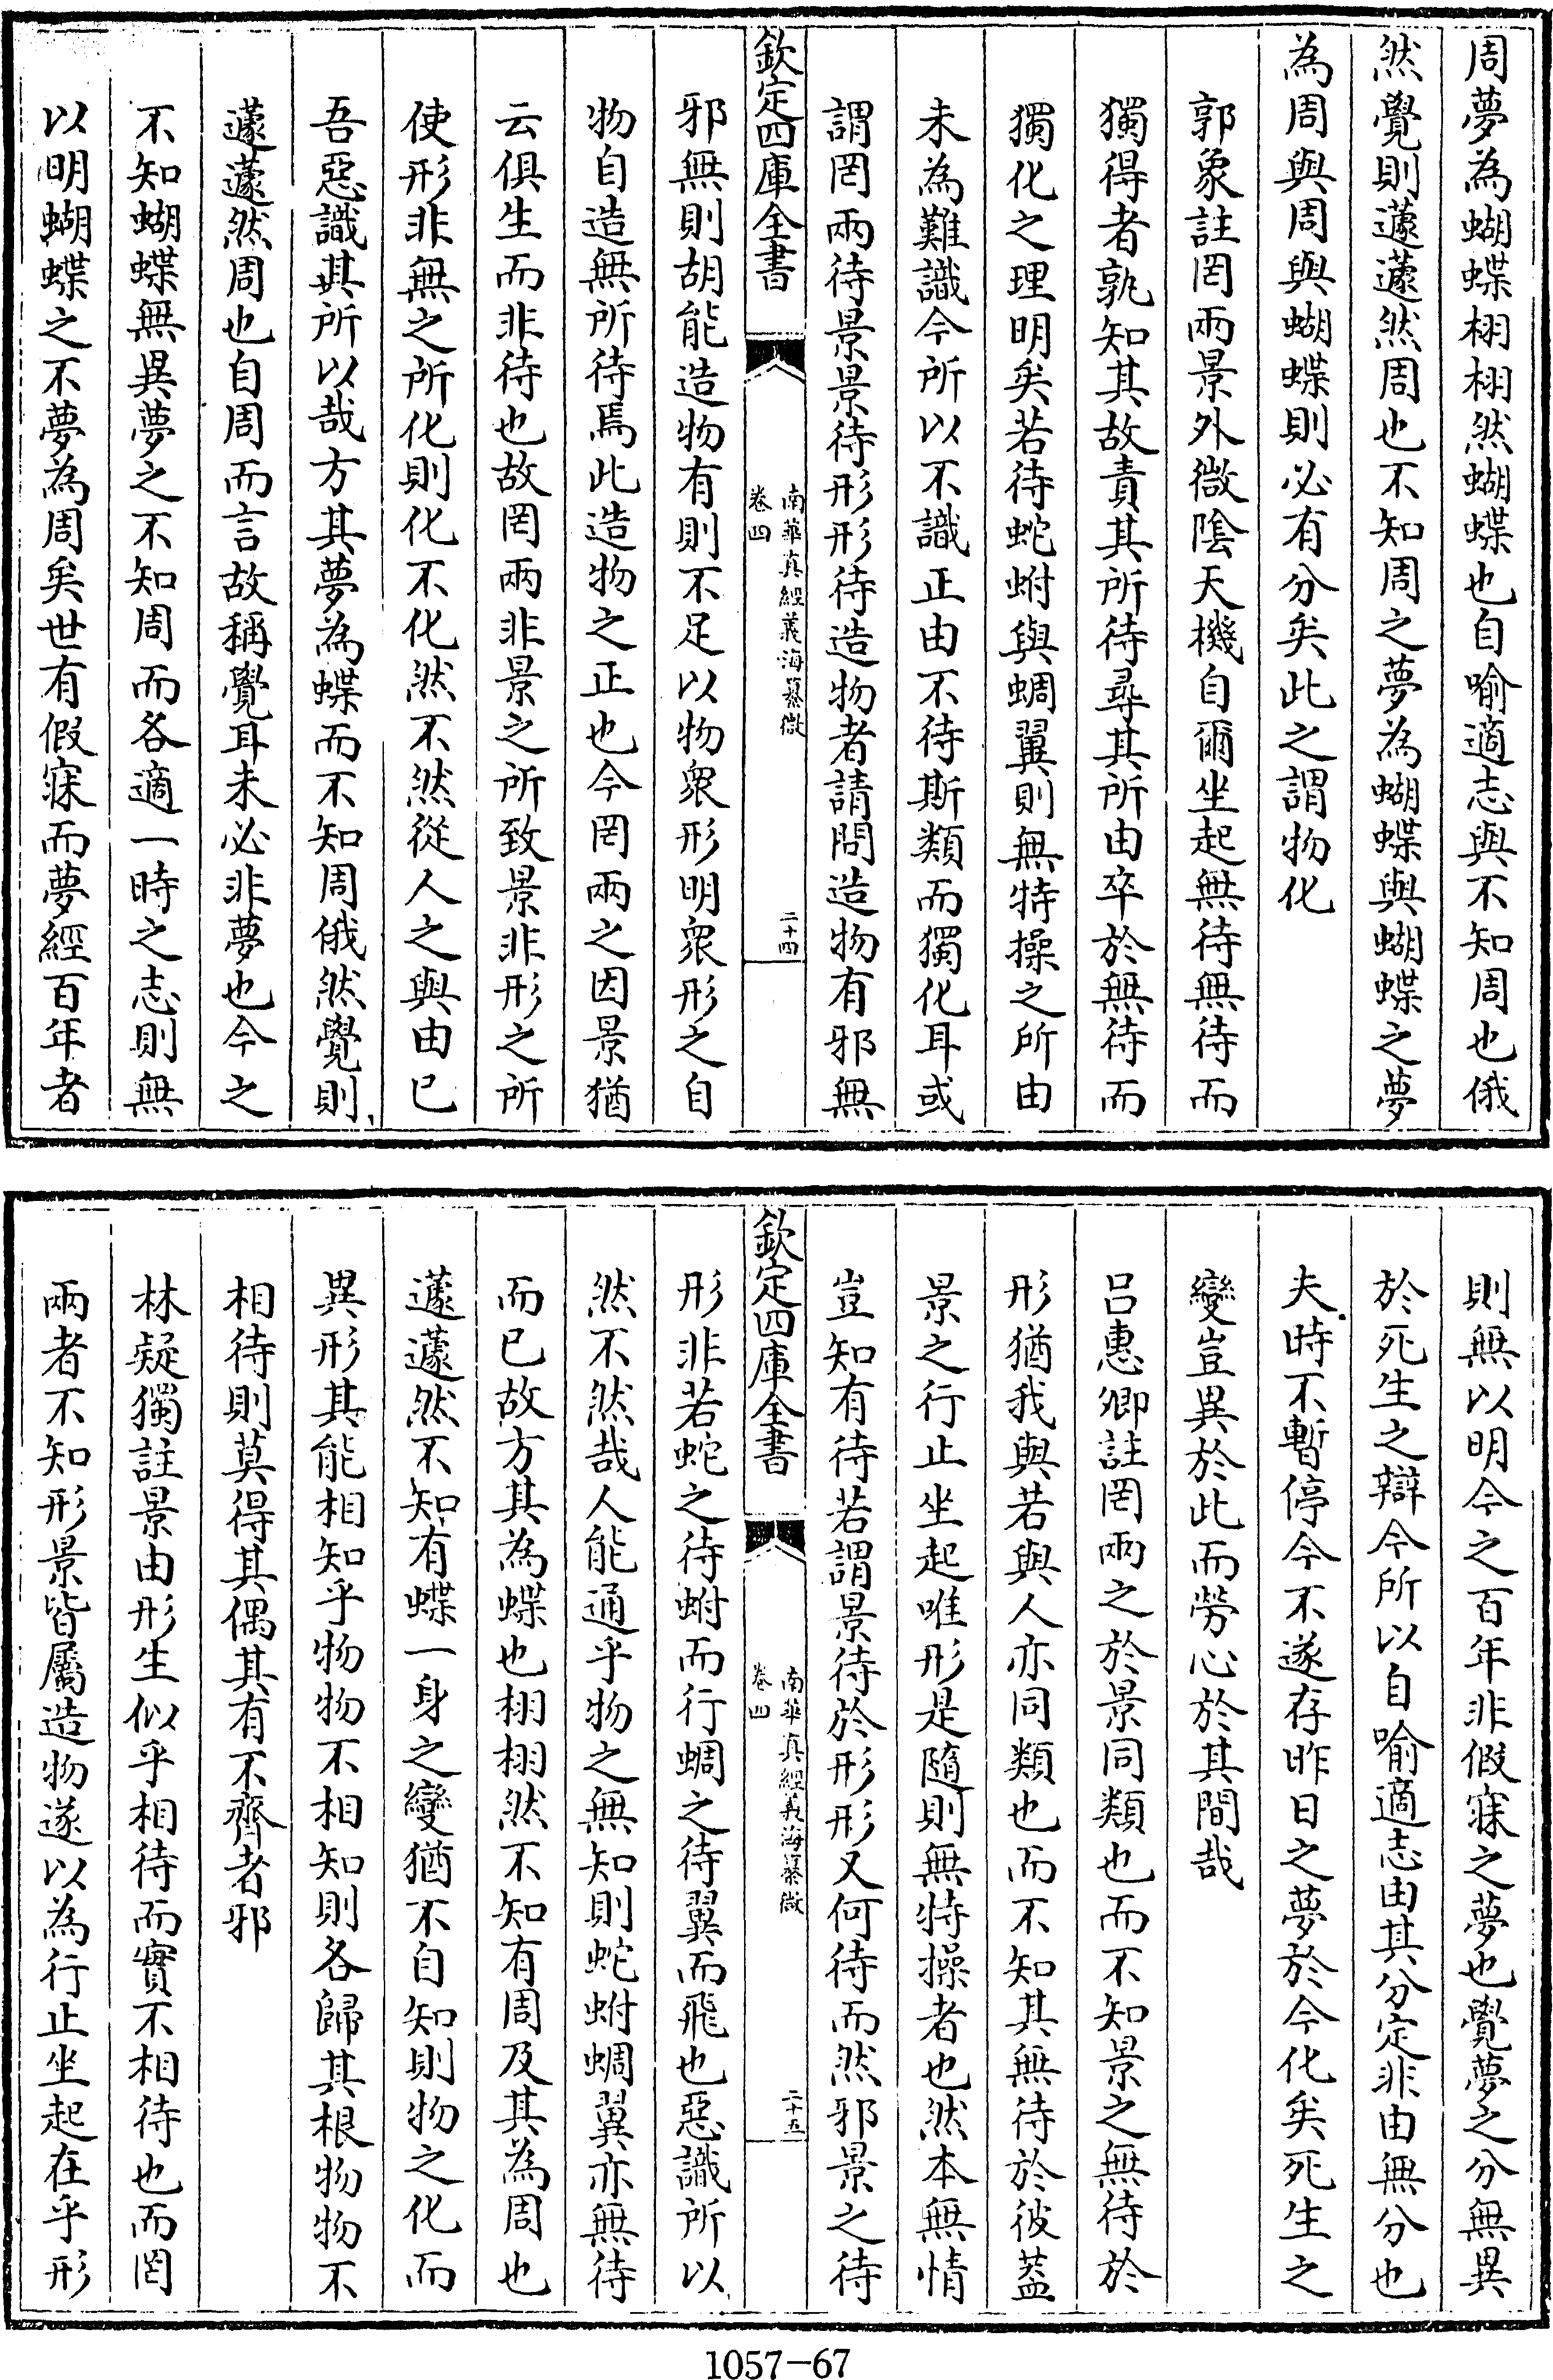 周夢為蝴蝶栩栩然蝴蝶也自喻適志與不知周也俄
然覺則蘧蘧然周也不知周之夢為蝴蝶與蝴蝶之夢
為周與周與蝴蝶則必有分矣此之謂物化
郭象註罔兩景外微陰天機自爾坐起無待無待而
獨得者孰知其故責其所待尋其所由卒於無待而
獨化之理明矣若待蛇蚹與蜩翼則無特操之所由
未為難識今所以不識正由不待斯類而獨化耳或
謂罔兩待景景待形形待造物者請問造物有邪無
欽定四庫全書
南華真經義海纂微
卷四
二十四
邪無則胡能造物有則不足以物衆形明衆形之自
物自造無所待焉此造物之正也今罔兩之因景猶
云俱生而非待也故罔兩非景之所致景非形之所
使形非無之所化則化不化然不然從人之與由已
吾惡識其所以哉方其夢為蝶而不知周俄然覺則
蘧蘧然周也自周而言故稱覺耳未必非夢也今之
不知蝴蝶無異夢之不知周而各適一時之志則無
以明蝴蝶之不夢為周矣世有假寐而夢經百年者
則無以明今之百年非假寐之夢也覺夢之分無異
於死生之辯今所以自喻適志由其分定非由無分也
夫時不暫停今不遂存昨日之夢於今化矣死生之
變豈異於此而勞心於其間哉
呂惠卿註罔兩之於景同類也而不知景之無待於
形猶我與若與人亦同類也而不知其無待於彼蓋
景之行止坐起唯形是隨則無特操者也然本無情
豈知有待若謂景待於形形又何待而然邪景之待
欽定四庫全書
南華真經義海纂微
卷四
二十五
形非若蛇之待蚹而行蜩之待翼而飛也惡識所以
然不然哉人能通乎物之無知則蛇蚹蜩翼亦無待
而已故方其為蝶也栩栩然不知有周及其為周也
蘧蘧然不知有蝶一身之變猶不自知則物之化而
異形其能相知乎物物不相知則各歸其根物物不
相待則莫得其偶其有不齊者邪
林疑獨註景由形生似乎相待而實不相待也而罔
兩者不知形景皆屬造物遂以為行止坐起在乎形
1057-67